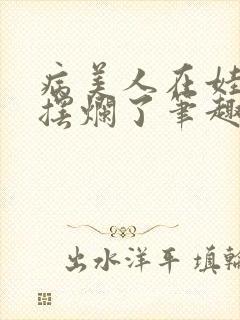 病美人在娃
摆烂了笔趣
出水洋平 填轮